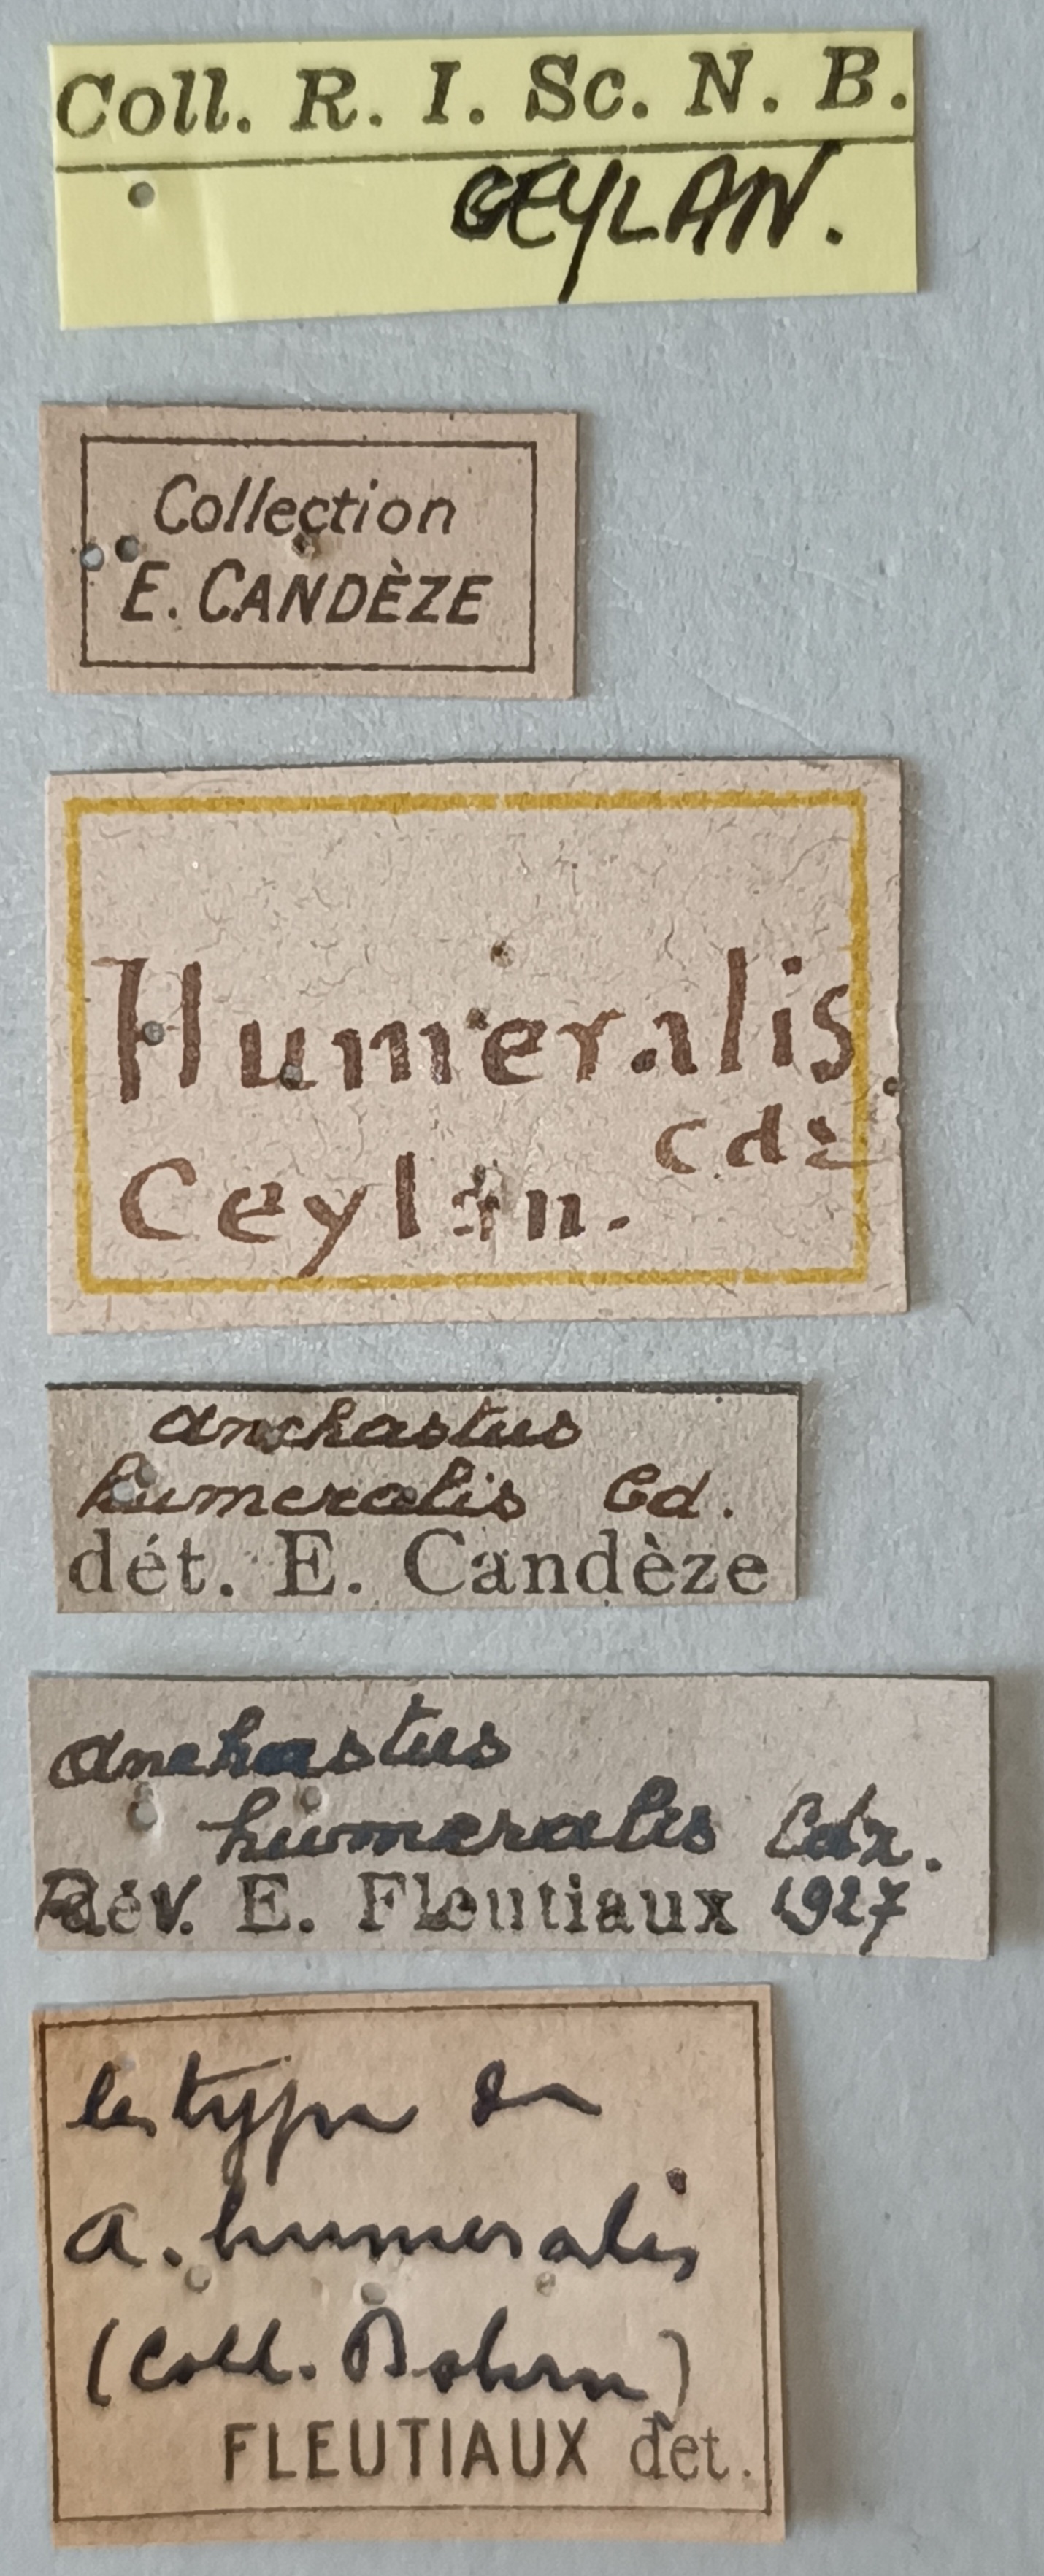 Coll. R. I. Sc. N. B.
CEYLAN.
Collection
E. CANDÈZE
Humeralis.
Cdz
Ceylan.
Anchastus
humeralis Cd.
dét. E. Candèze
Anchastus
humeralis Cdz.
Rév. E. Fleutiaux 1927
type
a. humeralis
(Coll. Dohrn)
FLEUTIAUX det.